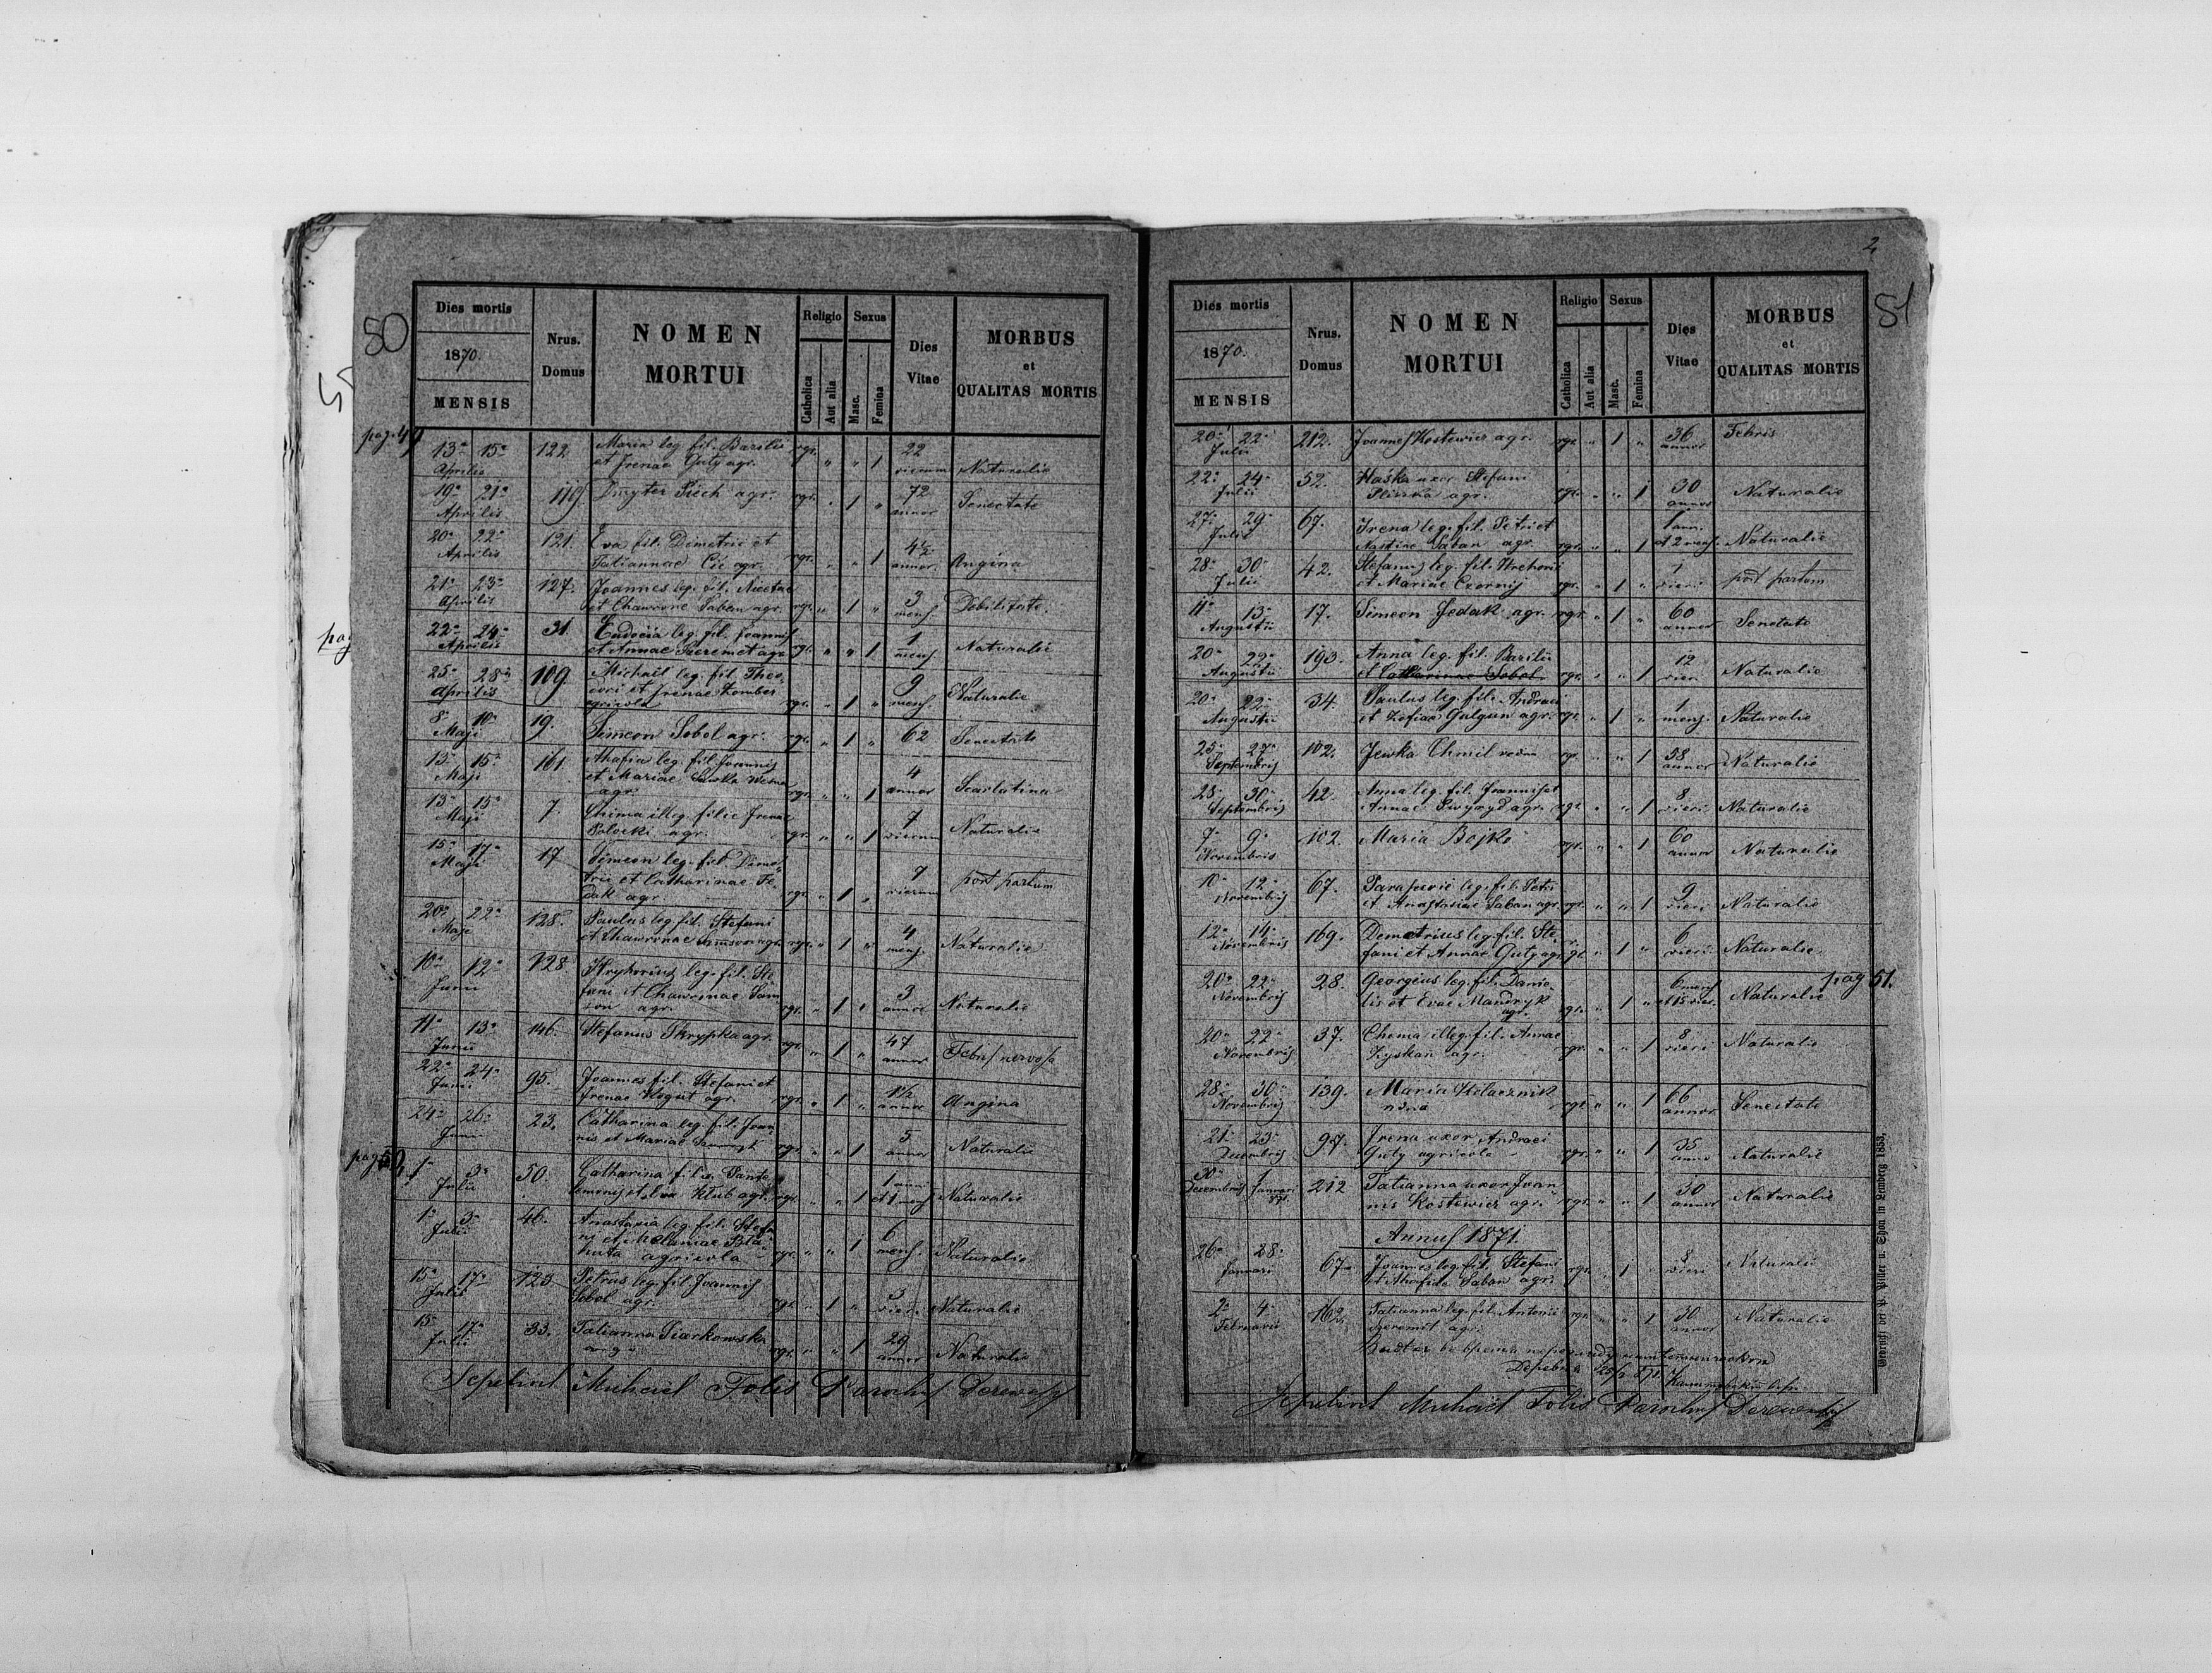 50
Dies mortis
1870.
MENSIS
Nrus.
Domus
NOMEN
MORTUI
Religio
Catholica
Aut alia
Sexus
Masc.
Femina
Dies
Vitae
MORBUS
et
QUALITAS MORTIS
pag. 49
13a 15a Aprilis 122. Maria leg. fil. Basilii
et Irenae Guty agr. rgr. " " 1 22 dierum Naturalis
19a 21a Aprilis 119 Dmyter Piech agr. rgr. " 1 " 72 annor Senectute
20a 22a Aprilis 121. Eva fil. Demetrii et
Tatiannae Cic agr. rgr. " " 1 4½ annor. Angina
21a 23a Aprilis 127. Joannes leg. fil. Nicetae
et Chawrone Saban agr. rgr. " 1 " 3 mens Debilitate.
22a 24a Aprilis 31. Eudocia leg. fil. Joannis
et Annae Szeremet agr. rgr. " " 1 1 mens Naturalis
25a 28a Aprilis 109. Michael leg. fil. Theo-
dori et Irenae Zomber
agricola rgr. " 1 " 9 mens. Naturalis
8a 10a Maji 19. Simeon Sobol agr. rgr. " 1 " 62 Senectute
13a 15a Maji 161. Ahafia leg. fil. Joannis
et Mariae
agr. rgr. " " 1 4 annor Scarlatina
13a 15a Maji 7. Chima illeg. filie Irenae
agr. rgr. " " 1 7 dierum Naturalis
15a 17a Maji 17 Simeon leg. fil. Deme-
trii et Catharinae Fe-
dak agr. rgr. " 1 " dierum post partum
20a 22a Maji 128. Paulus leg. fil. Stefani
et Chawronae Samson agr. rgr. " 1 " 4 mens. Naturalis
10a 12a Junii 128 Hryhorius leg. fil. Ste-
fani et Chawronae Sam-
son agr. rgr. " 1 " 3 annor Naturalis
11a 13a Junii 146. Stefanus Skrypka agr. rgr. " 1 " 47 annor Febris nervosa
22a 24a Junii 95. Joannes fil. Stefani et
Irenae Kogut agr. rgr. " 1 " 1½ annor Angina
24a 26a Junii 23. Catharina leg. fil. Joan-
nis et Mariae rgr. " " 1 5 annor Naturalis
pag 50.
1a 3a Julii 50. Catharina filia Pante-
lemonis et Eva Klub agr. rgr. " " 1 1 anni et 1 mens Naturalis
1a 3a Julii 46. Anastasia leg. fil. Stefa-
ni et Melaniae
agricola rgr. " " 1 6 mens. Naturalis
15a 17a Julii 123 Petrus leg. fil. Joannis
Sobol agr. rgr. " 1 " 3 dieri Naturalis
15a 17a Julii 33. Tatianna Siarkowska
rgr. " " 1 29 annor Naturalis
Sepelivit Michael Folis Parochus Derewens
2
51
Dies mortis
1870.
MENSIS
Nrus.
Domus
NOMEN
MORTUI
Religio
Catholica
Aut alia
Sexus
Masc.
Femina
Dies
Vitae
MORBUS
et
QUALITAS MORTIS
20a 22a Julii 212. Joannes Kostewicz agr. rgr. " 1 " 36 annor Febris
22a 24a Julii 52. Haśka uxor Stefani
agr. rgr. " " 1 30 annor Naturalis
27a 29a Julii 67. Irena leg. fil. Petri et
Nastiae Saban agr. rgr. " " 1 1 ann. et 2 mens. Naturalis
28a 30a Julii 42. Stefanus leg. fil. Hrehorii
et Mariae Czornij rgr. " 1 " 1 dieri post partum
11a 13a Augusti 17. Simeon Fedak agr. rgr. " 1 " 60 annor Senectute
20a 22a Augusti 193. Anna leg. fil. Basilii
et Catharinae Sobol rgr. " " 1 12 dieri Naturalis
20a 22a Augusti 34. Paulus leg. fil. Andraei
et Zofiae Gulgun agr. rgr. " 1 " 1 mens. Naturalis
25a 27a Septembris 102. Jewka Chmil vedua rgr. " " 1 58 annor Naturalis
28a 30a Septembris 42. Anna leg. fil. Joannis et
Annae agr. rgr. " " 1 8 dieri Naturalis
7a 9a Novembris 102. Maria Bojko rgr. " " 1 60 annor Naturalis
10a 12a Novembris 67. Parascevie leg. fil. Petri
et Anastasiae Saban agr. rgr. " " 1 9 dieri Naturalis
12a 14a Novembris 169. Demetrius leg. fil. Ste-
fani et Annae Guty agr. rgr. " 1 " 6 dieri Naturalis
20a 22a Novembris 28. Georgius leg. fil. Danie-
lis et Evae Mandryk
agr. rgr. " 1 " 6 mens et 15 dier. Naturalis
pag 51.
20a 22a Novembris 37. Chema illeg. fil. Annae
Zyskan agr. rgr. " " 1 8 dieri Naturalis
28a 30a Novembris 139. Maria
rgr. " " 1 66 annor Senectute
21a 23a Decembris 97. Irena uxor Andraei
Guty agricola rgr. " " 1 35 anno Naturalis
30a Decembris 1 Januari 871. 212 Tatianna uxor Joan-
nis Kostewicz agr. rgr. " " 1 30 annor Naturalis
Annus 1871.
26a 28a Januari 67 Joannes leg. fil. Stefani
et Ahafia Saban agr. rgr. " 1 " 8 dieri Naturalis
2a 4a Februarii 162. Tatianna leg. fil. Antonii
Szeremet agr. rgr. " " 1 30 annor Naturalis
Sepelivit Michael Folis Parochus Derewens
Gedruckt bei P. Piller u. Sohn in Lemberg 1853.